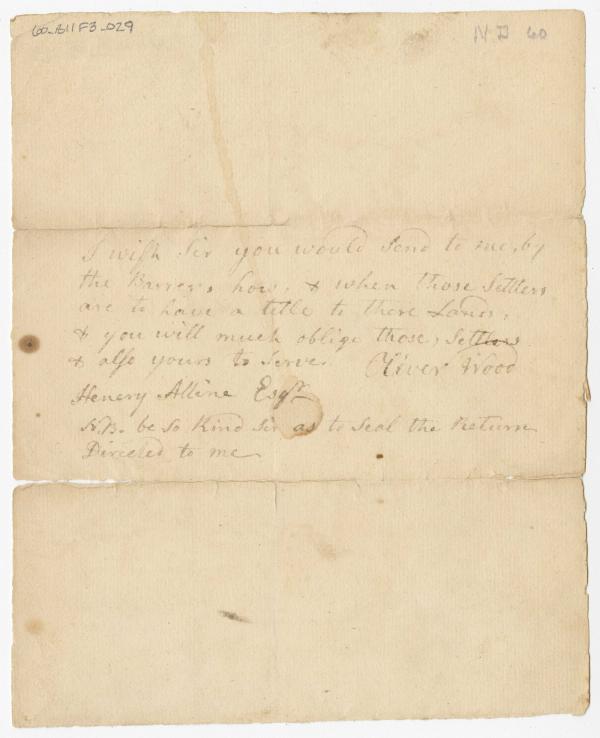 60_1511F3_029
N B 60
I wish Sir you would Send to me, by
the Barrer, how, & when those Settlers
are to have a title to there Lands,
& you will much oblige those, Settlers
& also yours to Serve Oliver Wood
Henery Alline Esqr
N.B. be So Kind Sir as to Seal the Return
Directed to me